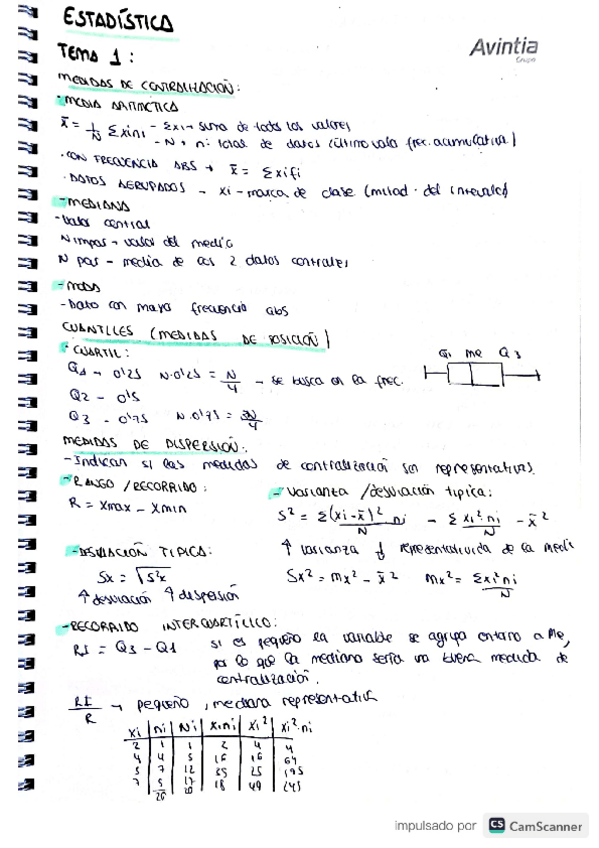 ESTADÍSTICA
Avintia
Grupo
TEMA 1:
MEDIDAS DE CENTRALIZACIÓN:
- MEDIA ARITMÉTICA
x̄ = 1/N Σxini - Σxi → suma de todos los valores
- N → ni total de datos (último valor frec. acumulativa)
· CON FRECUENCIA ABS → x̄ = Σxifi
· DATOS AGRUPADOS → xi - marca de clase (mitad del intervalo)
- MEDIANA
- Valor central
N impar → valor del medio
N par - media de los 2 datos centrales
- MODA
- Dato con mayor frecuencia abs
CUANTILES (MEDIDAS DE POSICIÓN)
· CUARTIL:
Q1 me Q3
Q1 → 0'25 N·0'25 = N/4 → se busca en la frec.
Q2 - 0'5
Q3 - 0'75 N·0'75 = 3N/4
MEDIDAS DE DISPERSIÓN:
- Indican si las medidas de centralización son representativas.
- RANGO / RECORRIDO:
R = Xmax - Xmin
- Varianza / desviación típica:
S² = Σ(xi-x̄)² ni / N → Σxi²·ni / N - x̄²
↑ varianza ↓ representatividad de la media
- DESVIACIÓN TÍPICA:
Sx = √S²x
↑ desviación ↑ dispersión
Sx² = mx² - x̄² mx² = Σxi²ni / N
- RECORRIDO INTERCUARTÍLICO:
RI = Q3 - Q1
si es pequeño la variable se agrupa entorno a Me,
por lo que la mediana sería una buena medida de
centralización.
RI/R → pequeño, mediana representativa
xi | ni | Ni | xini | xi² | xi²·ni
2 | 1 | 1 | 2 | 4 | 4
4 | 4 | 5 | 16 | 16 | 64
5 | 7 | 12 | 35 | 25 | 175
7 | 5 | 17 | 18 | 49 | 245
20 20
impulsado por CS CamScanner